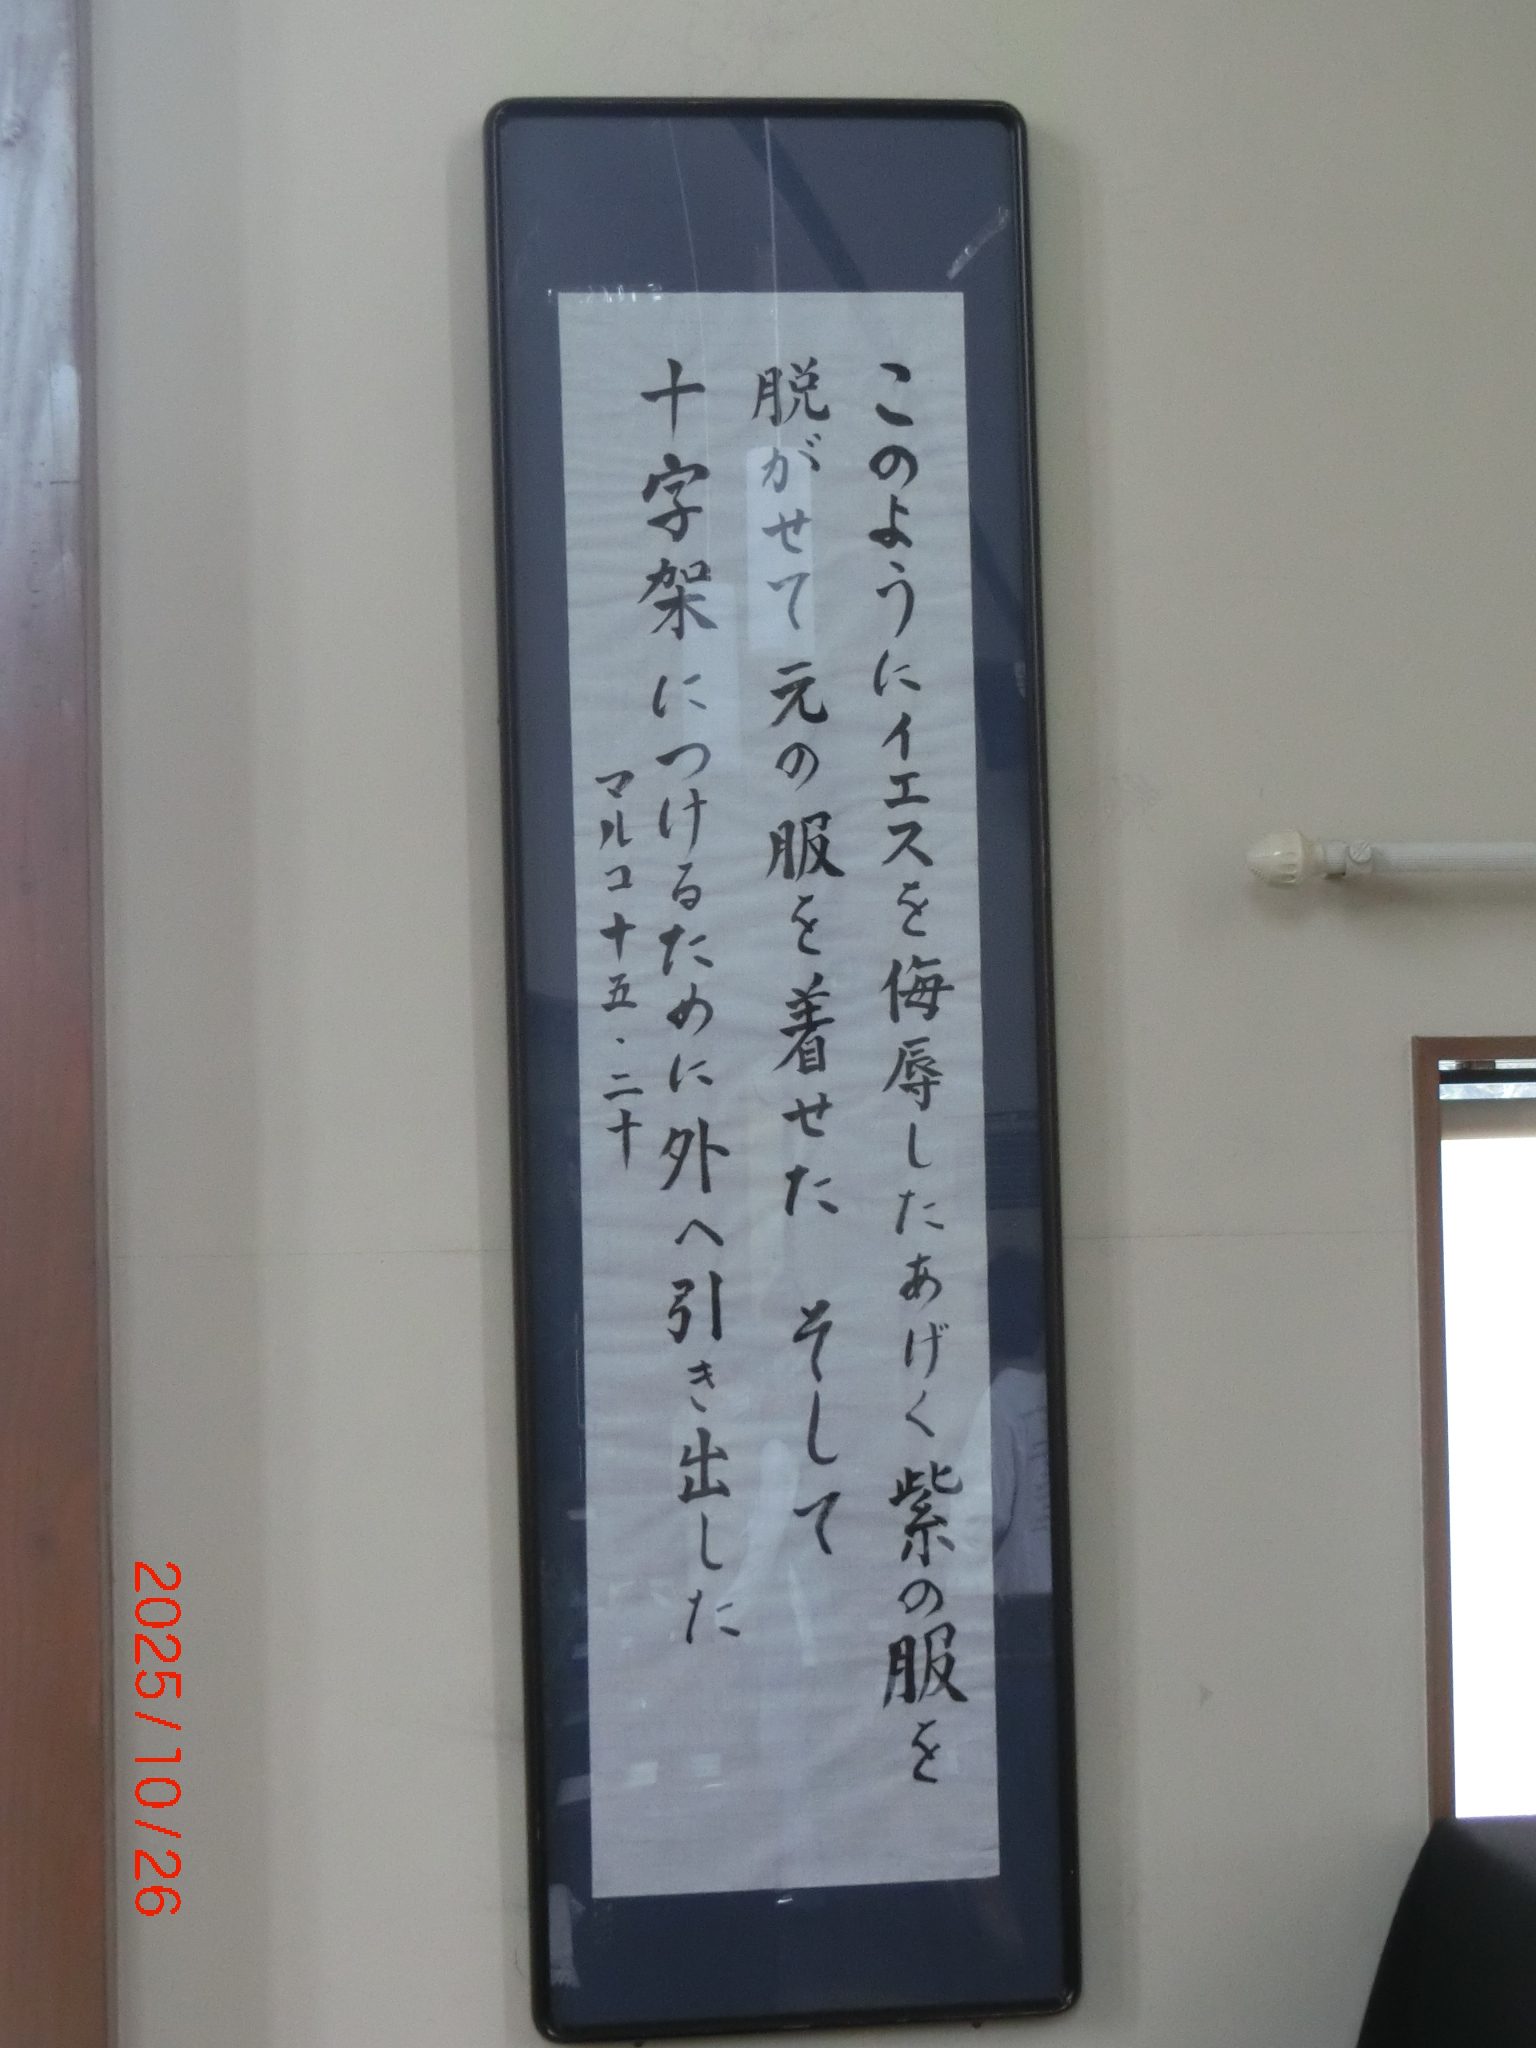 このようにイエスを侮辱したあげく紫の服を
脱がせて元の服を着せた　そして
十字架につけるために外へ引き出した
マルコ十五・二十
2025/10/26